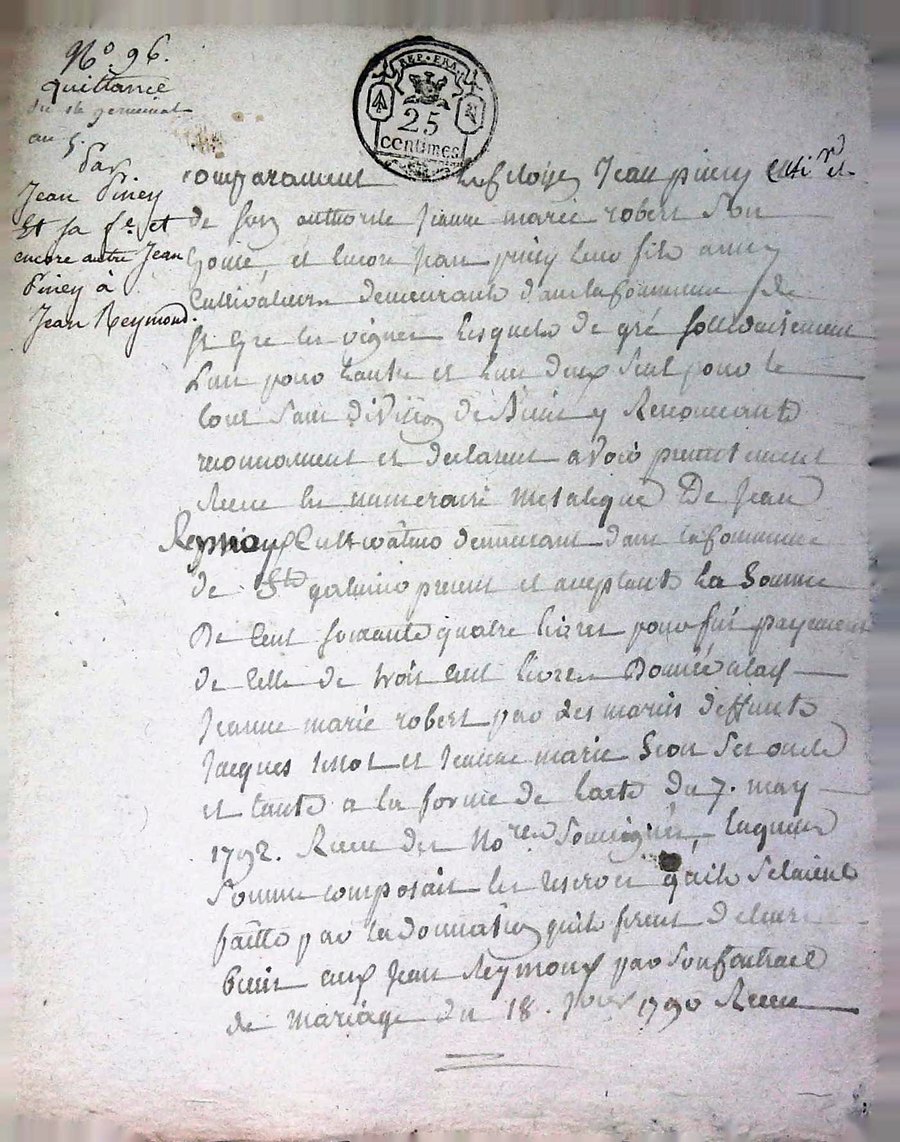 N° 96.
Quittance
du 16 germinal
an 5.
Par
Jean Piney
Et sa fe. et
encore autre Jean
Piney à
Jean Reymond.
REP. FRA.
25
centimes
comparaissent Jean piney et
de son authorité Jeanne marie robert son
et encore Jean piney leur fils
Cultivateurs demeurants dans la Commune de
les vignes lesquels de gré solidairement
L'un pour l'autre et l'un deux seul pour le
tout sans division de Biens y Renonceant
reconnoissent et declarent avoir presentement
Receu en numeraire metalique De Jean
Reymond Cultivateur demeurant dans la Commune
de St galmier present et acceptant La Somme
De Cent soixante quatre livres pour fin payement
de Celle de trois Cent livres Donnée a lad
Jeanne marie robert par les mariés deffunts
Jacques et Jeanne marie Ses oncle
et tante a la forme de lacte du 7. may
1792. Receu des Nores Soussignés, laquelle
Somme composait les reserves quils Setaient
faitte par la donnation quils firent de leurs
biens aux Jean Reymond par Son Contract
de mariage du 18. 1790 Receu